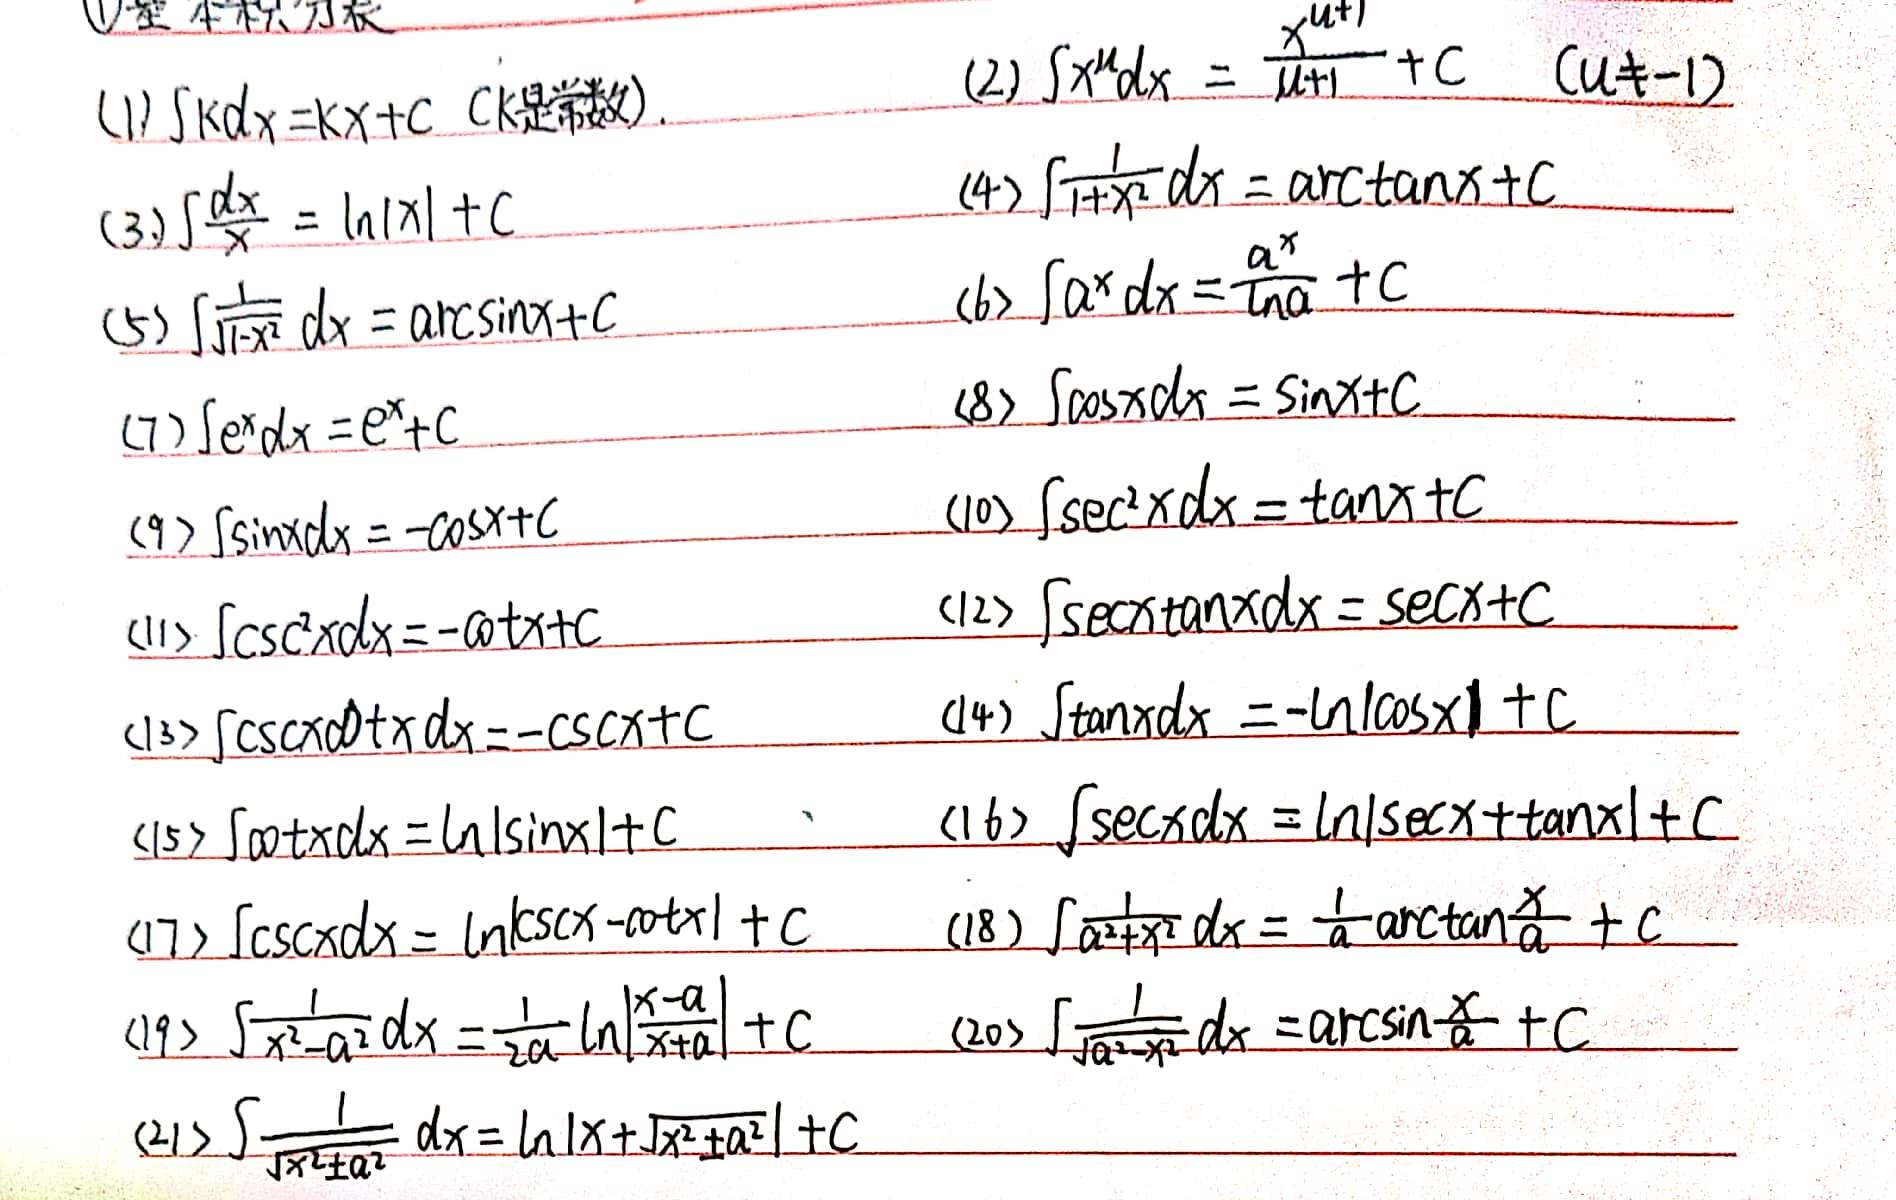 ①基本积分表
(1) ∫kdx=kx+C (k是常数).
(2) ∫x^u dx = x^(u+1)/(u+1) +C (u≠-1)
(3) ∫dx/x = ln|x|+C
(4) ∫1/(1+x²) dx = arctanx+C
(5) ∫1/√(1-x²) dx = arcsinx+C
(6) ∫a^x dx = a^x/lna +C
(7) ∫e^x dx = e^x+C
(8) ∫cosxdx = sinx+C
(9) ∫sinxdx = -cosx+C
(10) ∫sec²xdx = tanx+C
(11) ∫csc²xdx = -cotx+C
(12) ∫secxtanxdx = secx+C
(13) ∫cscxcotxdx = -cscx+C
(14) ∫tanxdx = -ln|cosx|+C
(15) ∫cotxdx = ln|sinx|+C
(16) ∫secxdx = ln|secx+tanx|+C
(17) ∫cscxdx = ln|cscx-cotx|+C
(18) ∫1/(a²+x²) dx = 1/a arctan x/a +C
(19) ∫1/(x²-a²) dx = 1/2a ln|(x-a)/(x+a)|+C
(20) ∫1/√(a²-x²) dx = arcsin x/a +C
(21) ∫1/√(x²±a²) dx = ln|x+√(x²±a²)|+C